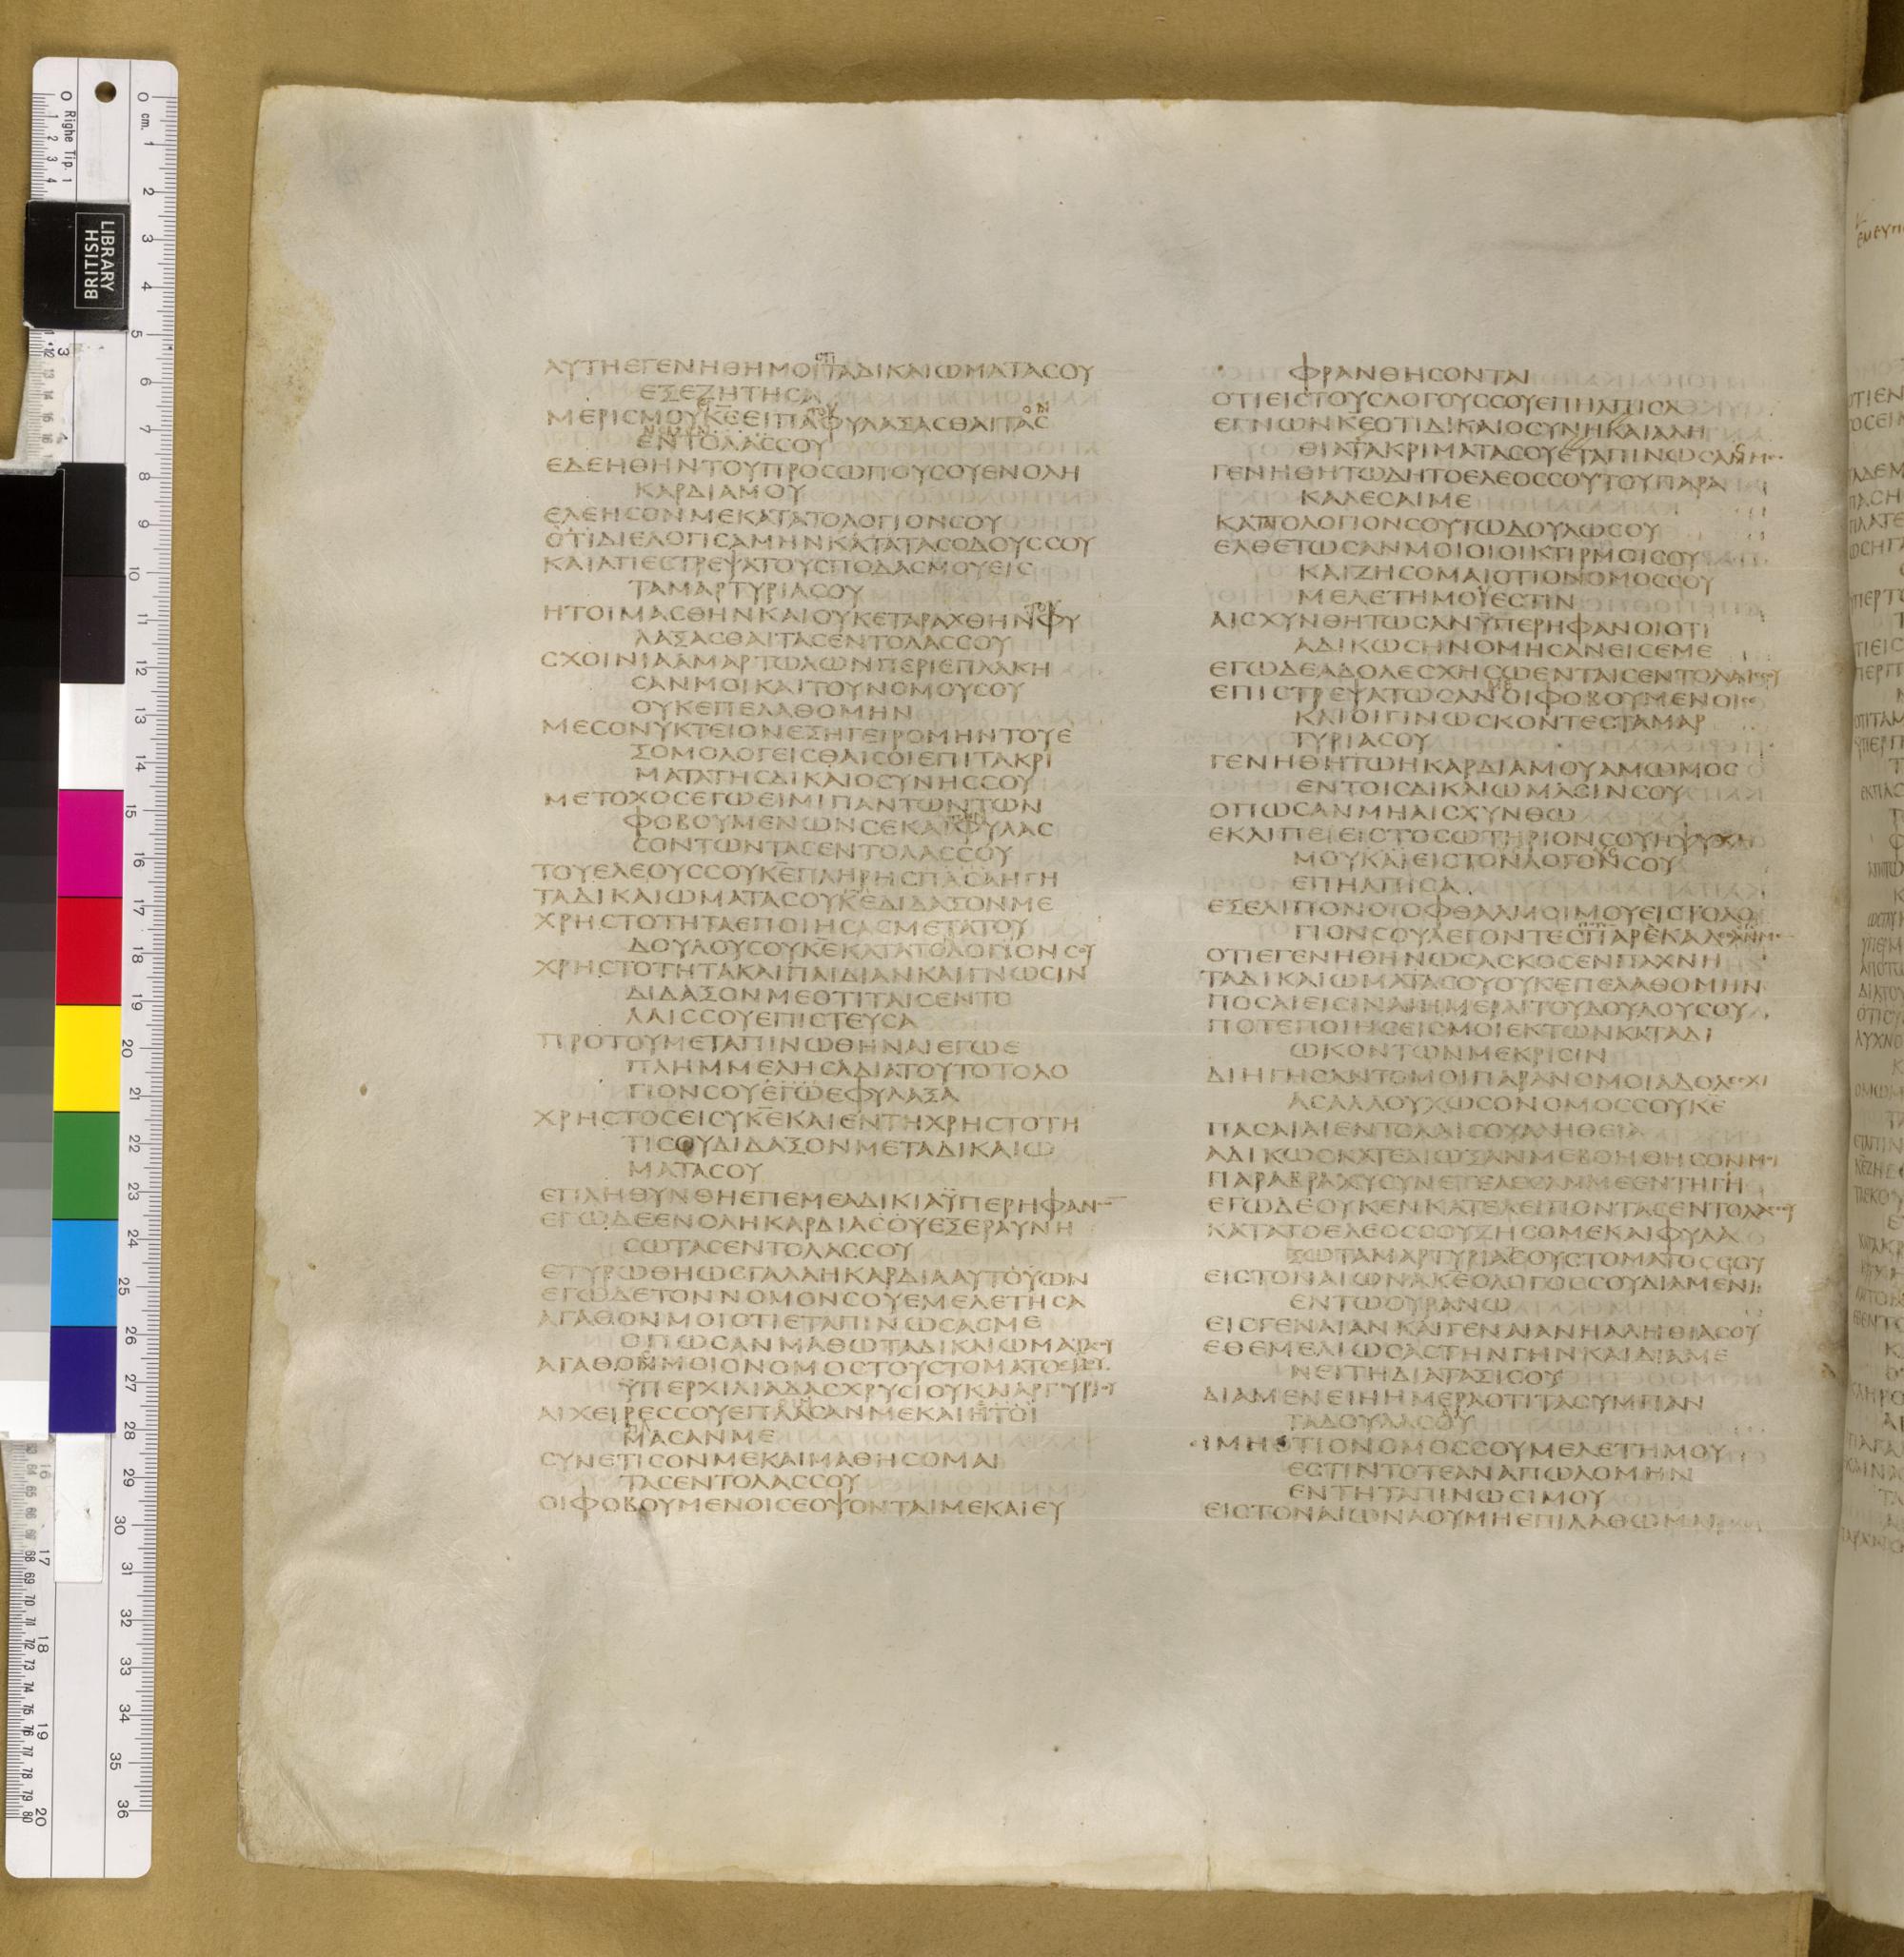 ΑΥΤΗΕΓΕΝΗΘΗΜΟΙΤΑΔΙΚΑΙΩΜΑΤΑCΟΥ
ΕΞΕΖΗΤΗCΑ
ΜΕΡΙCΜΟΥΚ̅Ε̅ΕΙΠΑΦΥΛΑΞΑCΘΑΙΤΑC
ΕΝΤΟΛΑCCΟΥ
ΕΔΕΗΘΗΝΤΟΥΠΡΟCΩΠΟΥCΟΥΕΝΟΛΗ
ΚΑΡΔΙΑΜΟΥ
ΕΛΕΗCΟΝΜΕΚΑΤΑΤΟΛΟΓΙΟΝCΟΥ
ΟΤΙΔΙΕΛΟΓΙCΑΜΗΝΚΑΤΑΤΑCΟΔΟΥCCΟΥ
ΚΑΙΑΠΕCΤΡΕΨΑΤΟΥCΠΟΔΑCΜΟΥΕΙC
ΤΑΜΑΡΤΥΡΙΑCΟΥ
ΗΤΟΙΜΑCΘΗΝΚΑΙΟΥΚΕΤΑΡΑΧΘΗΝΦΥ
ΛΑΞΑCΘΑΙΤΑCΕΝΤΟΛΑCCΟΥ
CΧΟΙΝΙΑΑΜΑΡΤΩΛΩΝΠΕΡΙΕΠΛΑΚΗ
CΑΝΜΟΙΚΑΙΤΟΥΝΟΜΟΥCΟΥ
ΟΥΚΕΠΕΛΑΘΟΜΗΝ
ΜΕCΟΝΥΚΤΕΙΟΝΕΞΗΓΕΙΡΟΜΗΝΤΟΥΕ
ΞΟΜΟΛΟΓΕΙCΘΑΙCΟΙΕΠΙΤΑΚΡΙ
ΜΑΤΑΤΗCΔΙΚΑΙΟCΥΝΗCCΟΥ
ΜΕΤΟΧΟCΕΓΩΕΙΜΙΠΑΝΤΩΝΤΩΝ
ΦΟΒΟΥΜΕΝΩΝCΕΚΑΙΦΥΛΑC
CΟΝΤΩΝΤΑCΕΝΤΟΛΑCCΟΥ
ΤΟΥΕΛΕΟΥCCΟΥΚ̅Ε̅ΠΛΗΡΗCΠΑCΑΗΓΗ
ΤΑΔΙΚΑΙΩΜΑΤΑCΟΥΚ̅Ε̅ΔΙΔΑΞΟΝΜΕ
ΧΡΗCΤΟΤΗΤΑΕΠΟΙΗCΑCΜΕΤΑΤΟΥ
ΔΟΥΛΟΥCΟΥΚ̅Ε̅ΚΑΤΑΤΟΛΟΓΙΟΝCΟΥ
ΧΡΗCΤΟΤΗΤΑΚΑΙΠΑΙΔΙΑΝΚΑΙΓΝΩCΙΝ
ΔΙΔΑΞΟΝΜΕΟΤΙΤΑΙCΕΝΤΟ
ΛΑΙCCΟΥΕΠΙCΤΕΥCΑ
ΠΡΟΤΟΥΜΕΤΑΠΙΝΩΘΗΝΑΙΕΓΩΕ
ΠΛΗΜΜΕΛΗCΑΔΙΑΤΟΥΤΟΤΟΛΟ
ΓΙΟΝCΟΥΕΓΩΕΦΥΛΑΞΑ
ΧΡΗCΤΟCΕΙCΥΚ̅Ε̅ΚΑΙΕΝΤΗΧΡΗCΤΟΤΗ
ΤΙCΟΥΔΙΔΑΞΟΝΜΕΤΑΔΙΚΑΙΩ
ΜΑΤΑCΟΥ
ΕΠΛΗΘΥΝΘΗΕΠΕΜΕΑΔΙΚΙΑΫΠΕΡΗΦΑΝ
ΕΓΩΔΕΕΝΟΛΗΚΑΡΔΙΑCΟΥΕΞΕΡΑΥΝΗ
CΩΤΑCΕΝΤΟΛΑCCΟΥ
ΕΤΥΡΩΘΗΩCΓΑΛΑΗΚΑΡΔΙΑΑΥΤΟΥΩΝ
ΕΓΩΔΕΤΟΝΝΟΜΟΝCΟΥΕΜΕΛΕΤΗCΑ
ΑΓΑΘΟΝΜΟΙΟΤΙΕΤΑΠΙΝΩCΑCΜΕ
ΟΠΩCΑΝΜΑΘΩΤΑΔΙΚΑΙΩΜΑΤΑCΟΥ
ΑΓΑΘΟΝΜΟΙΟΝΟΜΟCΤΟΥCΤΟΜΑΤΟCCΟΥ
ΫΠΕΡΧΙΛΙΑΔΑCΧΡΥCΙΟΥΚΑΙΑΡΓΥΡΙΟΥ
ΑΙΧΕΙΡΕCCΟΥΕΠΛΑCΑΝΜΕΚΑΙΗΤΟΙ
ΜΑCΑΝΜΕ
CΥΝΕΤΙCΟΝΜΕΚΑΙΜΑΘΗCΟΜΑΙ
ΤΑCΕΝΤΟΛΑCCΟΥ
ΟΙΦΟΒΟΥΜΕΝΟΙCΕΟΨΟΝΤΑΙΜΕΚΑΙΕΥ
ΦΡΑΝΘΗCΟΝΤΑΙ
ΟΤΙΕΙCΤΟΥCΛΟΓΟΥCCΟΥΕΠΗΛΠΙCΑ
ΕΓΝΩΝΚ̅Ε̅ΟΤΙΔΙΚΑΙΟCΥΝΗΚΑΙΑΛΗ
ΘΙΑΤΑΚΡΙΜΑΤΑCΟΥΕΤΑΠΙΝΩCΑC
ΓΕΝΗΘΗΤΩΔΗΤΟΕΛΕΟCCΟΥΤΟΥΠΑΡΑ
ΚΑΛΕCΑΙΜΕ
ΚΑΤΑΤΟΛΟΓΙΟΝCΟΥΤΩΔΟΥΛΩCΟΥ
ΕΛΘΕΤΩCΑΝΜΟΙΟΙΟΙΚΤΙΡΜΟΙCΟΥ
ΚΑΙΖΗCΟΜΑΙΟΤΙΟΝΟΜΟCCΟΥ
ΜΕΛΕΤΗΜΟΥΕCΤΙΝ
ΑΙCΧΥΝΘΗΤΩCΑΝΫΠΕΡΗΦΑΝΟΙΟΤΙ
ΑΔΙΚΩCΗΝΟΜΗCΑΝΕΙCΕΜΕ
ΕΓΩΔΕΑΔΟΛΕCΧΗCΩΕΝΤΑΙCΕΝΤΟΛΑΙC
ΕΠΙCΤΡΕΨΑΤΩCΑΝΟΙΦΟΒΟΥΜΕΝΟΙ
ΚΑΙΟΙΓΙΝΩCΚΟΝΤΕCΤΑΜΑΡ
ΤΥΡΙΑCΟΥ
ΓΕΝΗΘΗΤΩΗΚΑΡΔΙΑΜΟΥΑΜΩΜΟC
ΕΝΤΟΙCΔΙΚΑΙΩΜΑCΙΝCΟΥ
ΟΠΩCΑΝΜΗΑΙCΧΥΝΘΩ
ΕΚΛΙΠΕΙΕΙCΤΟCΩΤΗΡΙΟΝCΟΥΗΨΥΧΗ
ΜΟΥΚΑΙΕΙCΤΟΝΛΟΓΟΝCΟΥ
ΕΠΗΛΠΙCΑ
ΕΞΕΛΙΠΟΝΟΙΟΦΘΑΛΜΟΙΜΟΥΕΙCΤΟΛΟ
ΓΙΟΝCΟΥΛΕΓΟΝΤΕC
ΟΤΙΕΓΕΝΗΘΗΝΩCΑCΚΟCΕΝΠΑΧΝΗ
ΤΑΔΙΚΑΙΩΜΑΤΑCΟΥΟΥΚΕΠΕΛΑΘΟΜΗΝ
ΠΟCΑΙΕΙCΙΝΑΙΗΜΕΡΑΙΤΟΥΔΟΥΛΟΥCΟΥ
ΠΟΤΕΠΟΙΗCΕΙCΜΟΙΕΚΤΩΝΚΑΤΑΔΙ
ΩΚΟΝΤΩΝΜΕΚΡΙCΙΝ
ΔΙΗΓΗCΑΝΤΟΜΟΙΠΑΡΑΝΟΜΟΙΑΔΟΛΕCΧΙ
ΑCΑΛΛΟΥΧΩCΟΝΟΜΟCCΟΥΚ̅Ε̅
ΠΑCΑΙΑΙΕΝΤΟΛΑΙCΟΥΑΛΗΘΕΙΑ
ΑΔΙΚΩCΚΑΤΕΔΙΩΞΑΝΜΕΒΟΗΘΗCΟΝΜΟΙ
ΠΑΡΑΒΡΑΧΥCΥΝΕΤΕΛΕCΑΝΜΕΕΝΤΗΓΗ
ΕΓΩΔΕΟΥΚΕΝΚΑΤΕΛΕΙΠΟΝΤΑCΕΝΤΟΛΑCCΟΥ
ΚΑΤΑΤΟΕΛΕΟCCΟΥΖΗCΟΜΕΚΑΙΦΥΛΑ
ΞΩΤΑΜΑΡΤΥΡΙΑCΟΥCΤΟΜΑΤΟCCΟΥ
ΕΙCΤΟΝΑΙΩΝΑΚ̅Ε̅ΟΛΟΓΟCCΟΥΔΙΑΜΕΝΙ
ΕΝΤΩΟΥΡΑΝΩ
ΕΙCΓΕΝΑΙΑΝΚΑΙΓΕΝΑΙΑΝΗΑΛΗΘΙΑCΟΥ
ΕΘΕΜΕΛΙΩCΑCΤΗΝΓΗΝΚΑΙΔΙΑΜΕ
ΝΕΙΤΗΔΙΑΤΑΞΙCΟΥ
ΔΙΑΜΕΝΕΙΗΗΜΕΡΑΟΤΙΤΑCΥΜΠΑΝ
ΤΑΔΟΥΛΑCΟΥ
ΙΜΗΟΤΙΟΝΟΜΟCCΟΥΜΕΛΕΤΗΜΟΥ
ΕCΤΙΝΤΟΤΕΑΝΑΠΩΛΟΜΗΝ
ΕΝΤΗΤΑΠΙΝΩCΙΜΟΥ
ΕΙCΤΟΝΑΙΩΝΑΟΥΜΗΕΠΙΛΑΘΩΜΑΙ
BRITISH
LIBRARY